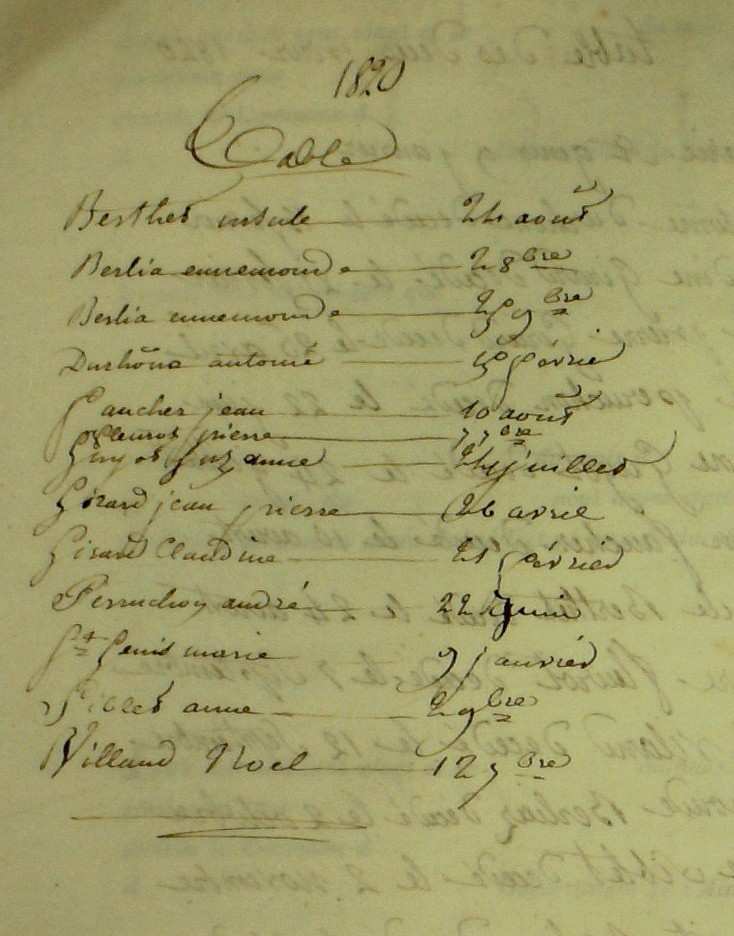 1820
Table
Berthet ursule 24 août
Berlia ennemonde 2 8bre
Berlia ennemonde 9bre
Durhône antome février
Gaucher jean 10 août
fleurot pierre 7 7bre
Guyot Suzanne 24 juillet
Girard jean pierre 26 avril
Girard Claudine 21 février
Perruchon andré 22 juin
St Genis marie 9 janvier
Siblet anne 2 9bre
Villand Noel 12 7bre